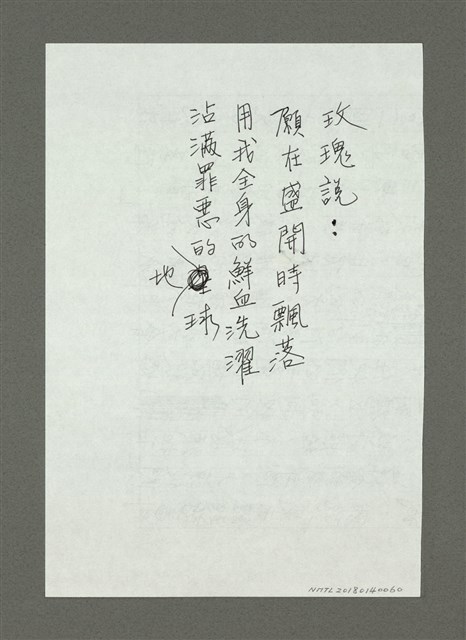 玫瑰說：
願在盛開時飄落
用我全身的鮮血洗濯
沾滿罪惡的地球
NMTL20180140060